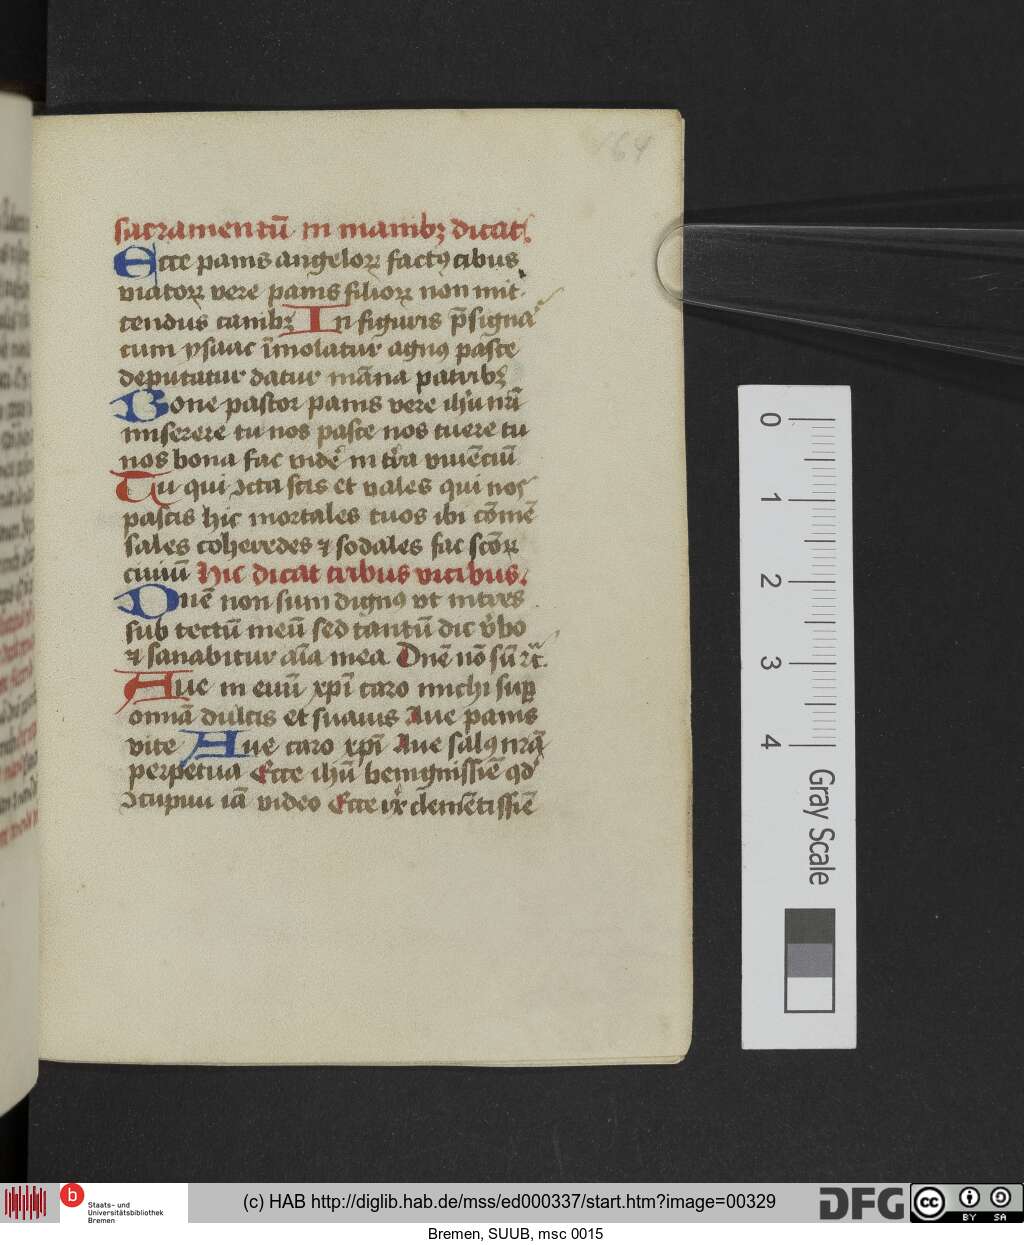 164
sacramentū in manibꝫ dicat.
Ecce panis angeloꝝ factꝯ cibus
viatoꝝ vere panis filioꝝ non mit
tendus canibꝫ In figuris p̄signa
tum ysaac īmolatur agnꝯ pasce
deputatur datur māna patribꝫ
Bone pastor panis vere ihū nr̄i
miserere tu nos pasce nos tuere tu
nos bona fac vidē in tr̄a viuēciū
Tu qui ɔcta scis et vales qui nos
pascis hic mortales tuos ibi cōmē
sales coheredes ⁊ sodales fac scōꝝ
ciuiū Hic dicat tribus vicibus.
Dn̄e non sum dignꝯ vt intres
sub tectū meū sed tantū dic v̄bo
⁊ sanabitur aīa mea Dn̄e nō sū rc̄.
Aue in euū xp̄i caro michi suꝑ
omnia dulcis et suauis Aue panis
vite Aue caro xp̄i Aue salꝯ nr̄a
perpetua Ecce ihū benignissīe qd̛
ɔcupiui iā video Ecce clemētissīe
0
1
2
3
4
Gray Scale
b
Staats- und
Universitätsbibliothek
Bremen
(c) HAB http://diglib.hab.de/mss/ed000337/start.htm?image=00329
DFG
cc
BY SA
Bremen, SUUB, msc 0015